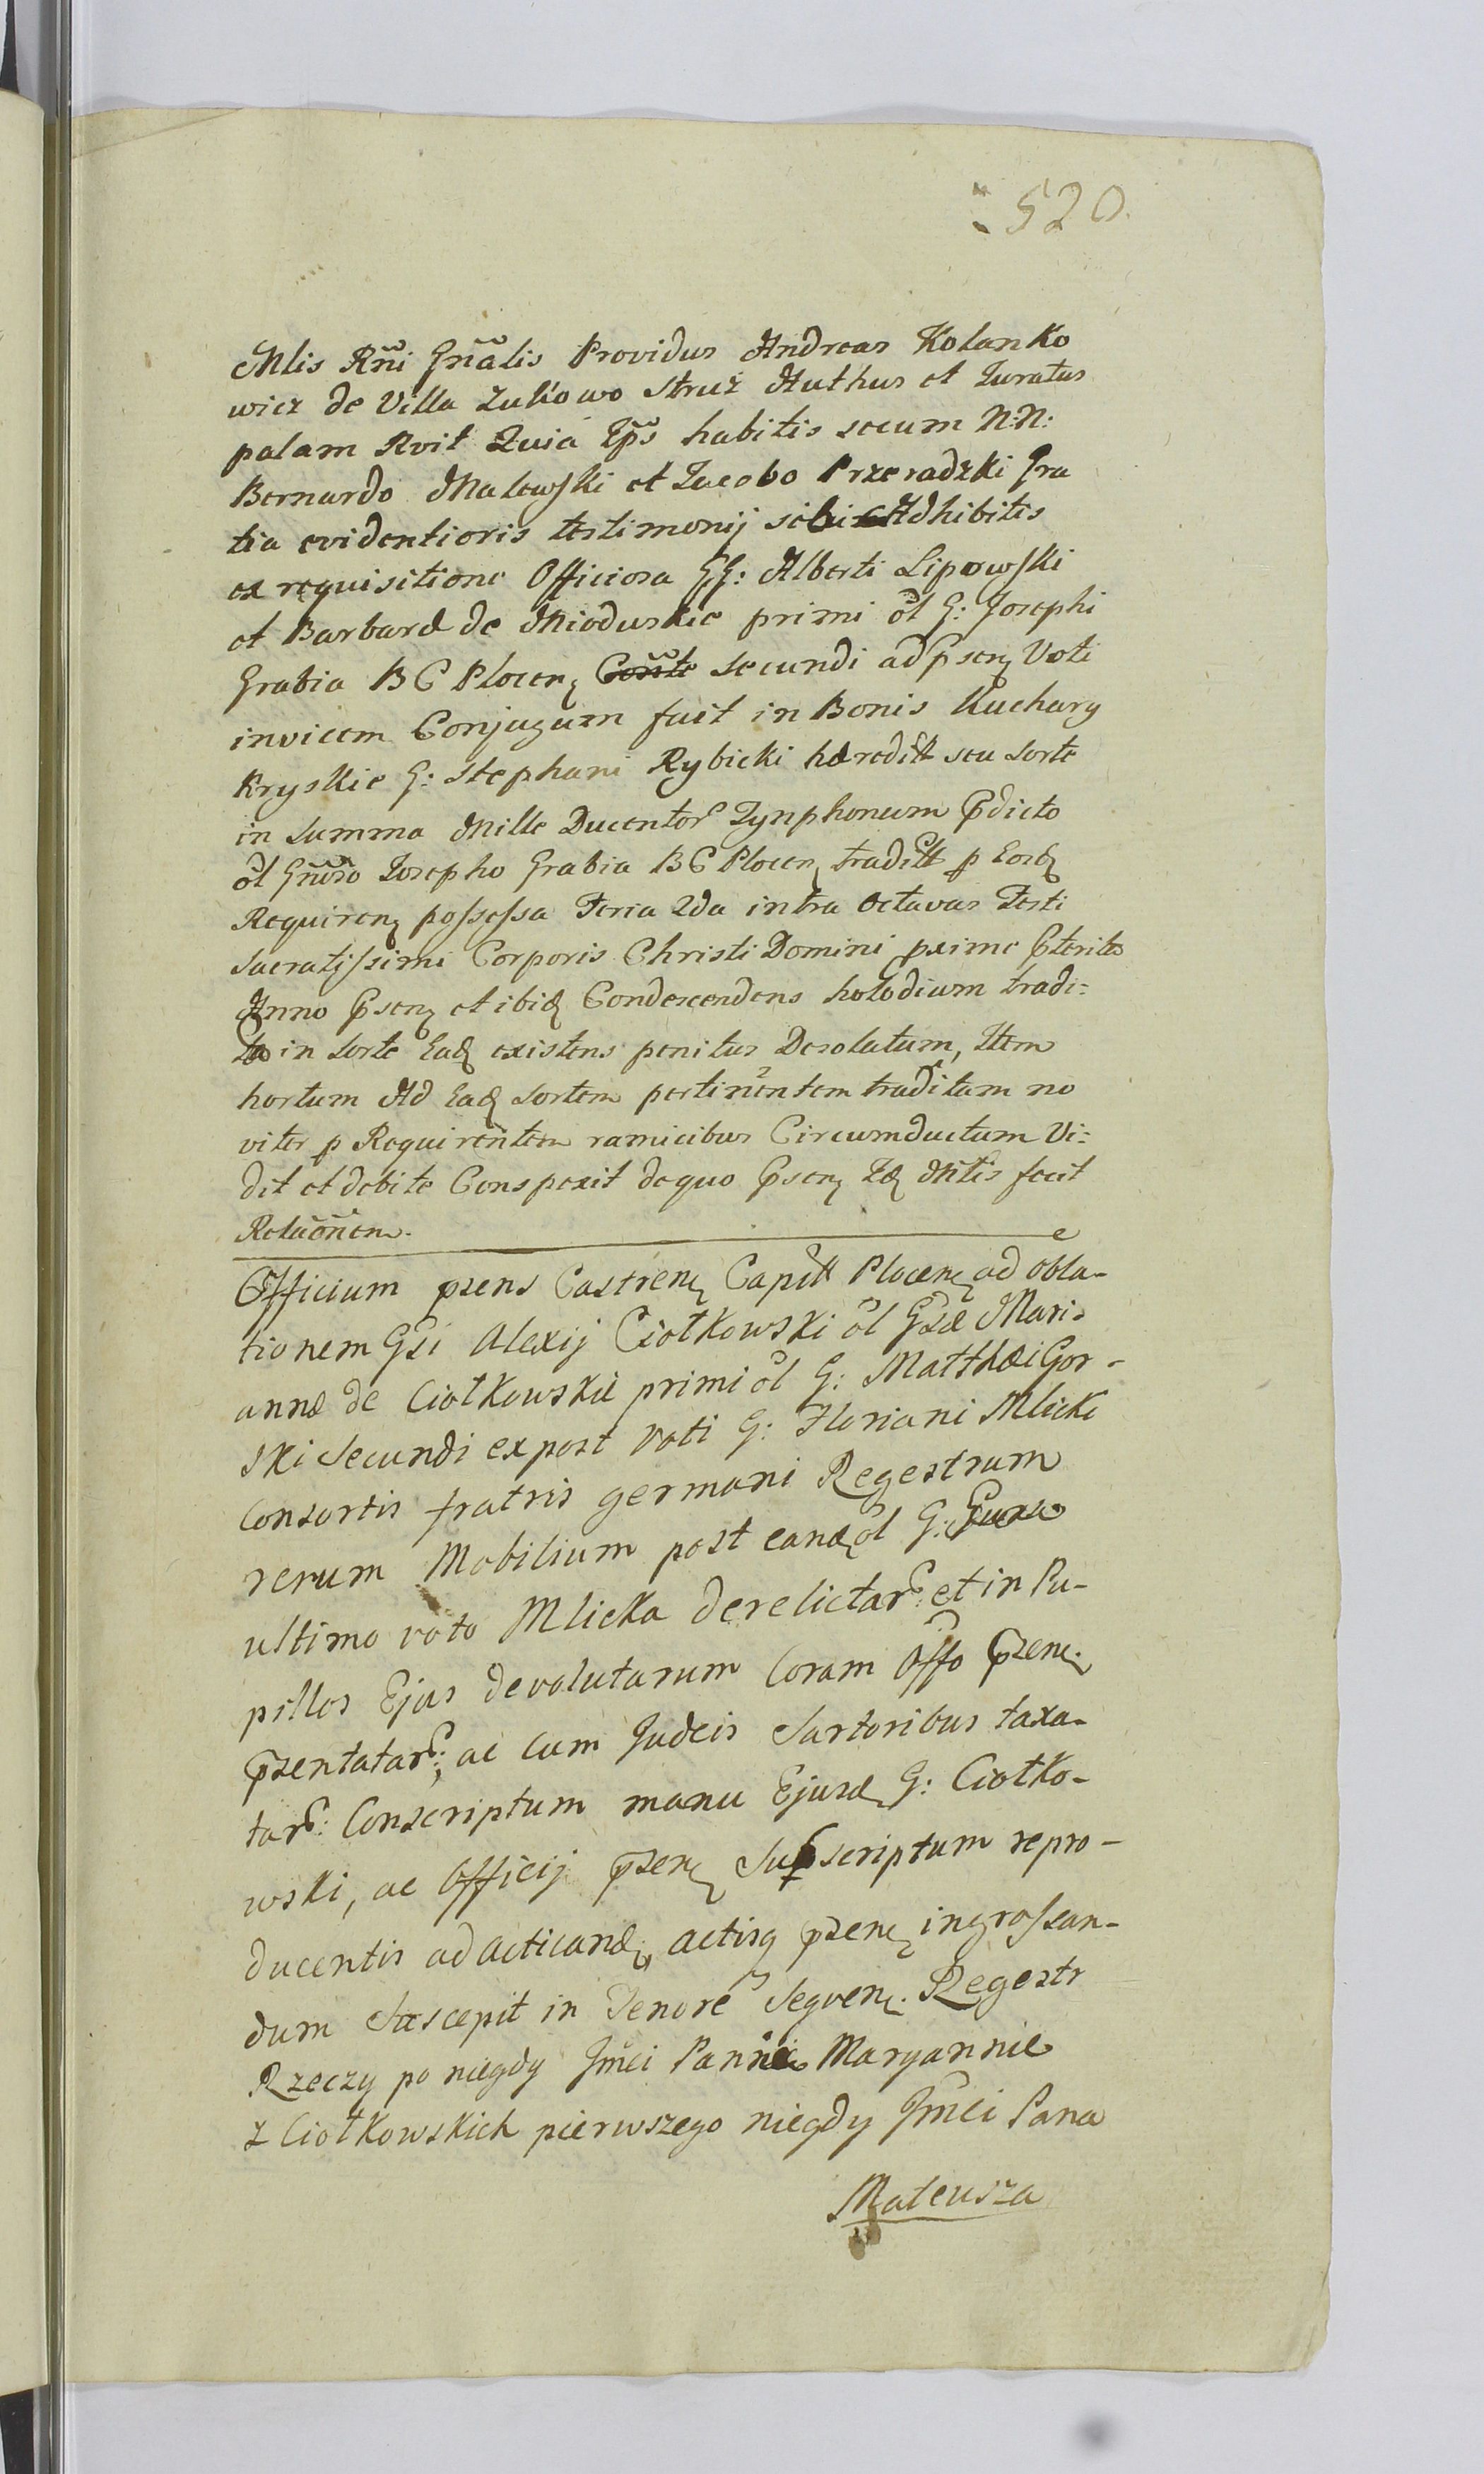 520.
Mlis Rñi Gñalis Providus Andreas Kolanko
wicz de Villa Zukowo Struż Authus et Juratus
palam Rvit Quia Ips habitis secum N:N:
Bernardo Malewski et Jacobo Przeradzki Gra
tia evidentioris testimonij sibi Adhibitis
ex requisitione Officiosa GG: Alberti Lipowski
et Barbaræ de Mioduskie primi ol G: Josephi
Grabia B C Plocen Secundi ad psen Voti
invicem Conjugum fuit in Bonis Kuchary
Kryskie G: Stephani Rybicki hæreditt seu Sorte
in Summa Mille Ducentor Tynphonum pdicto
ol Gnroso Josepho Grabia B C Plocen traditt p Eosd
Requiren possessa Feria 2da intra Octavas Festi
Sacratissimi Corporis Christi Domini pxime pterito
Anno psen et ibid Condescendens hotodium tradi-
in Sorte Ead existens penitus Desolatum, Item
hortum Ad Ead Sortem pertinentem traditam no
viter p Requirentem ramicibus Circumductum Vi-
dit et debite Conspexit dequo psen Id Mtis fecit
Relaõnem.
Officium psens Castren Capitt Plocen ad obla-
tionem Gsi Alexij Ciołkowski ol Gsæ Mari-
annæ de Ciołkowskie primi ol G: Matthæi Gor-
ski Secundi expost voti G: Floriani Mlicki
Consortis fratris germani Regestrum
rerum Mobilium post eand ol G:
ultimo voto Mlicka derelictar: et in Pu-
pillos Ejus devolutarum Coram Offo psen
psentatar: ac cum Judeis Sartoribus taxa-
tar: Conscriptum manu Ejusd G: Ciołko-
wski, ac Officij psen Subscriptum repro-
ducentis ad acticand, actisq psen ingrossan-
dum Suscepit in Tenore Seqven. Regestr
Rzeczy po niegdy Jmci Pannie Maryannie
z Ciołkowskich pierwszego niegdy Jmci Pana
Mateusza